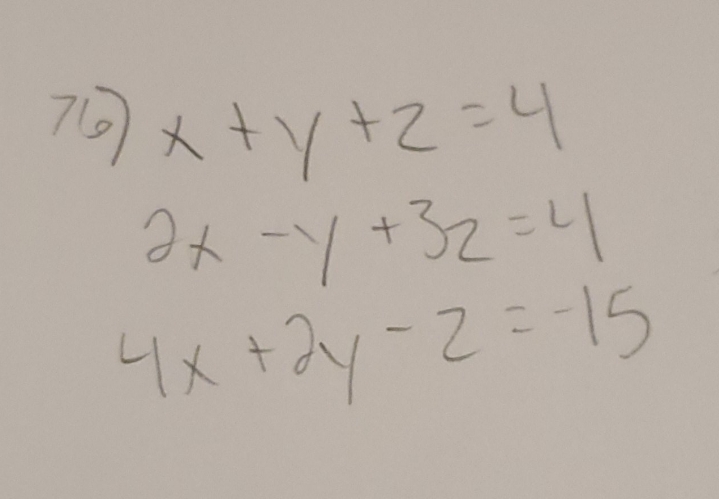 76) x + y + z = 4
2x - y + 3z = 4
4x + 2y - z = -15